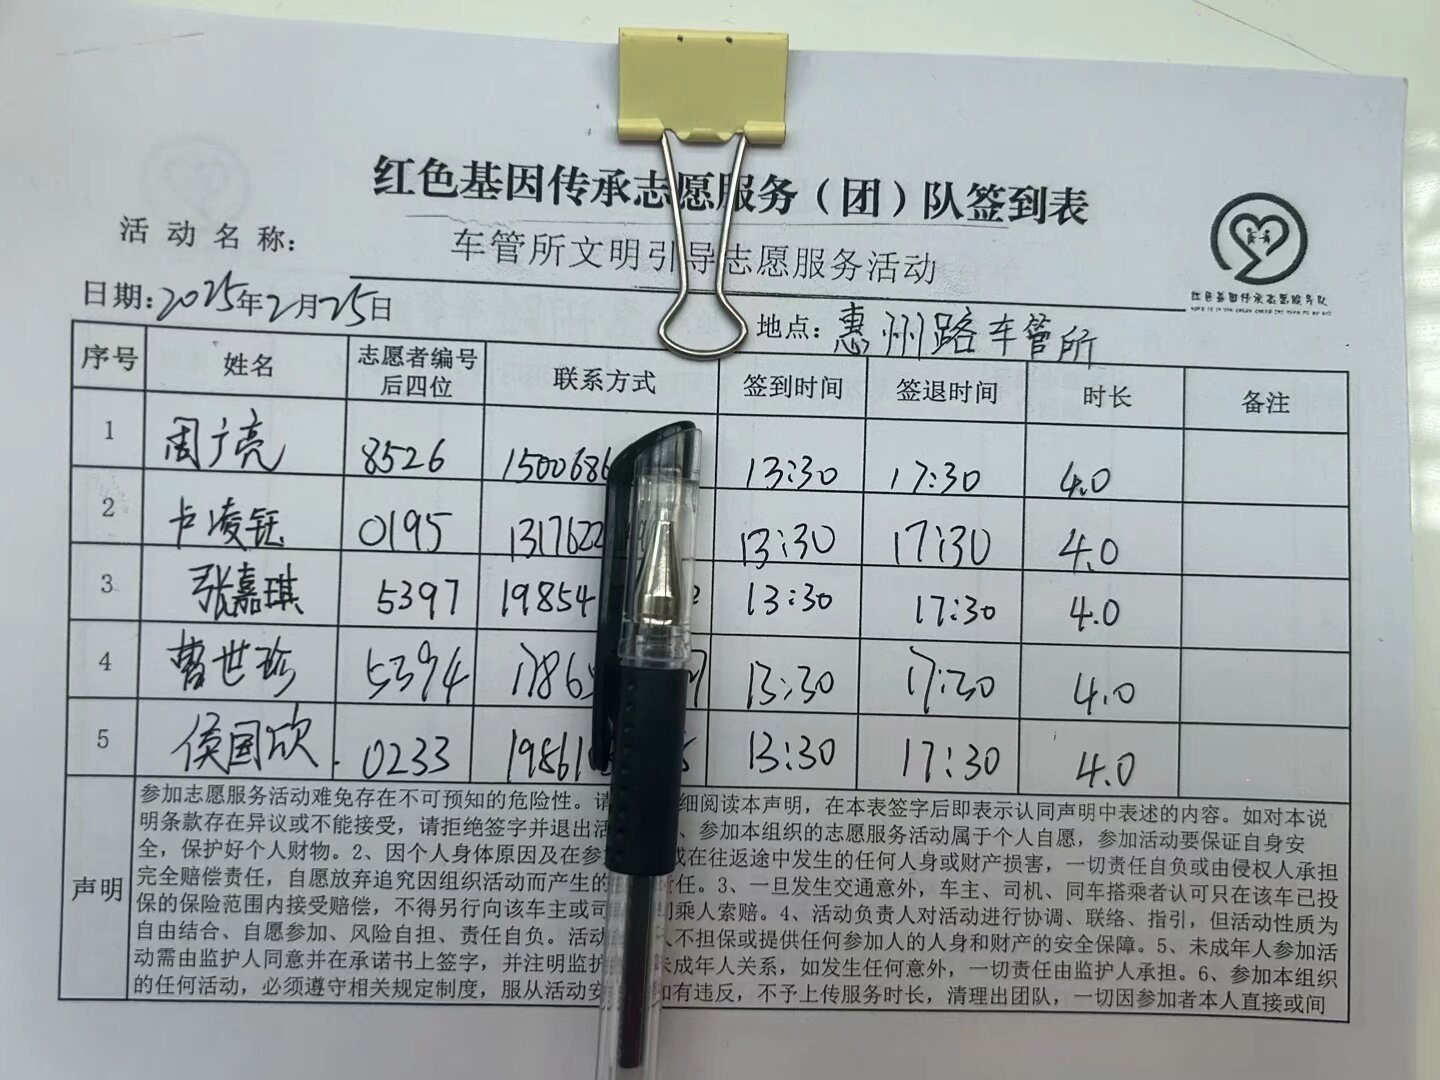 红色基因传承志愿服务（团）队签到表
活动名称： 车管所文明引导志愿服务活动
红色基因传承志愿服务队
日期：2025年2月25日 地点：惠州路车管所
序号 姓名 志愿者编号后四位 联系方式 签到时间 签退时间 时长 备注
1 周广亮 8526 1500686 13:30 17:30 4.0
2 卢凌钰 0195 1317622 13:30 17:30 4.0
3 张嘉琪 5397 19854 13:30 17:30 4.0
4 曹世珍 5394 1786 13:30 17:30 4.0
5 侯国欣 0233 1986 13:30 17:30 4.0
声明
参加志愿服务活动难免存在不可预知的危险性。请 细阅读本声明，在本表签字后即表示认同声明中表述的内容。如对本说
明条款存在异议或不能接受，请拒绝签字并退出活 、参加本组织的志愿服务活动属于个人自愿，参加活动要保证自身安
全，保护好个人财物。2、因个人身体原因及在参 或在往返途中发生的任何人身或财产损害，一切责任自负或由侵权人承担
完全赔偿责任，自愿放弃追究因组织活动而产生的 责任。3、一旦发生交通意外，车主、司机、同车搭乘者认可只在该车已投
保的保险范围内接受赔偿，不得另行向该车主或司 乘人索赔。4、活动负责人对活动进行协调、联络、指引，但活动性质为
自由结合、自愿参加、风险自担、责任自负。活动 人不担保或提供任何参加人的人身和财产的安全保障。5、未成年人参加活
动需由监护人同意并在承诺书上签字，并注明监护 未成年人关系，如发生任何意外，一切责任由监护人承担。6、参加本组织
的任何活动，必须遵守相关规定制度，服从活动安 如有违反，不予上传服务时长，清理出团队，一切因参加者本人直接或间